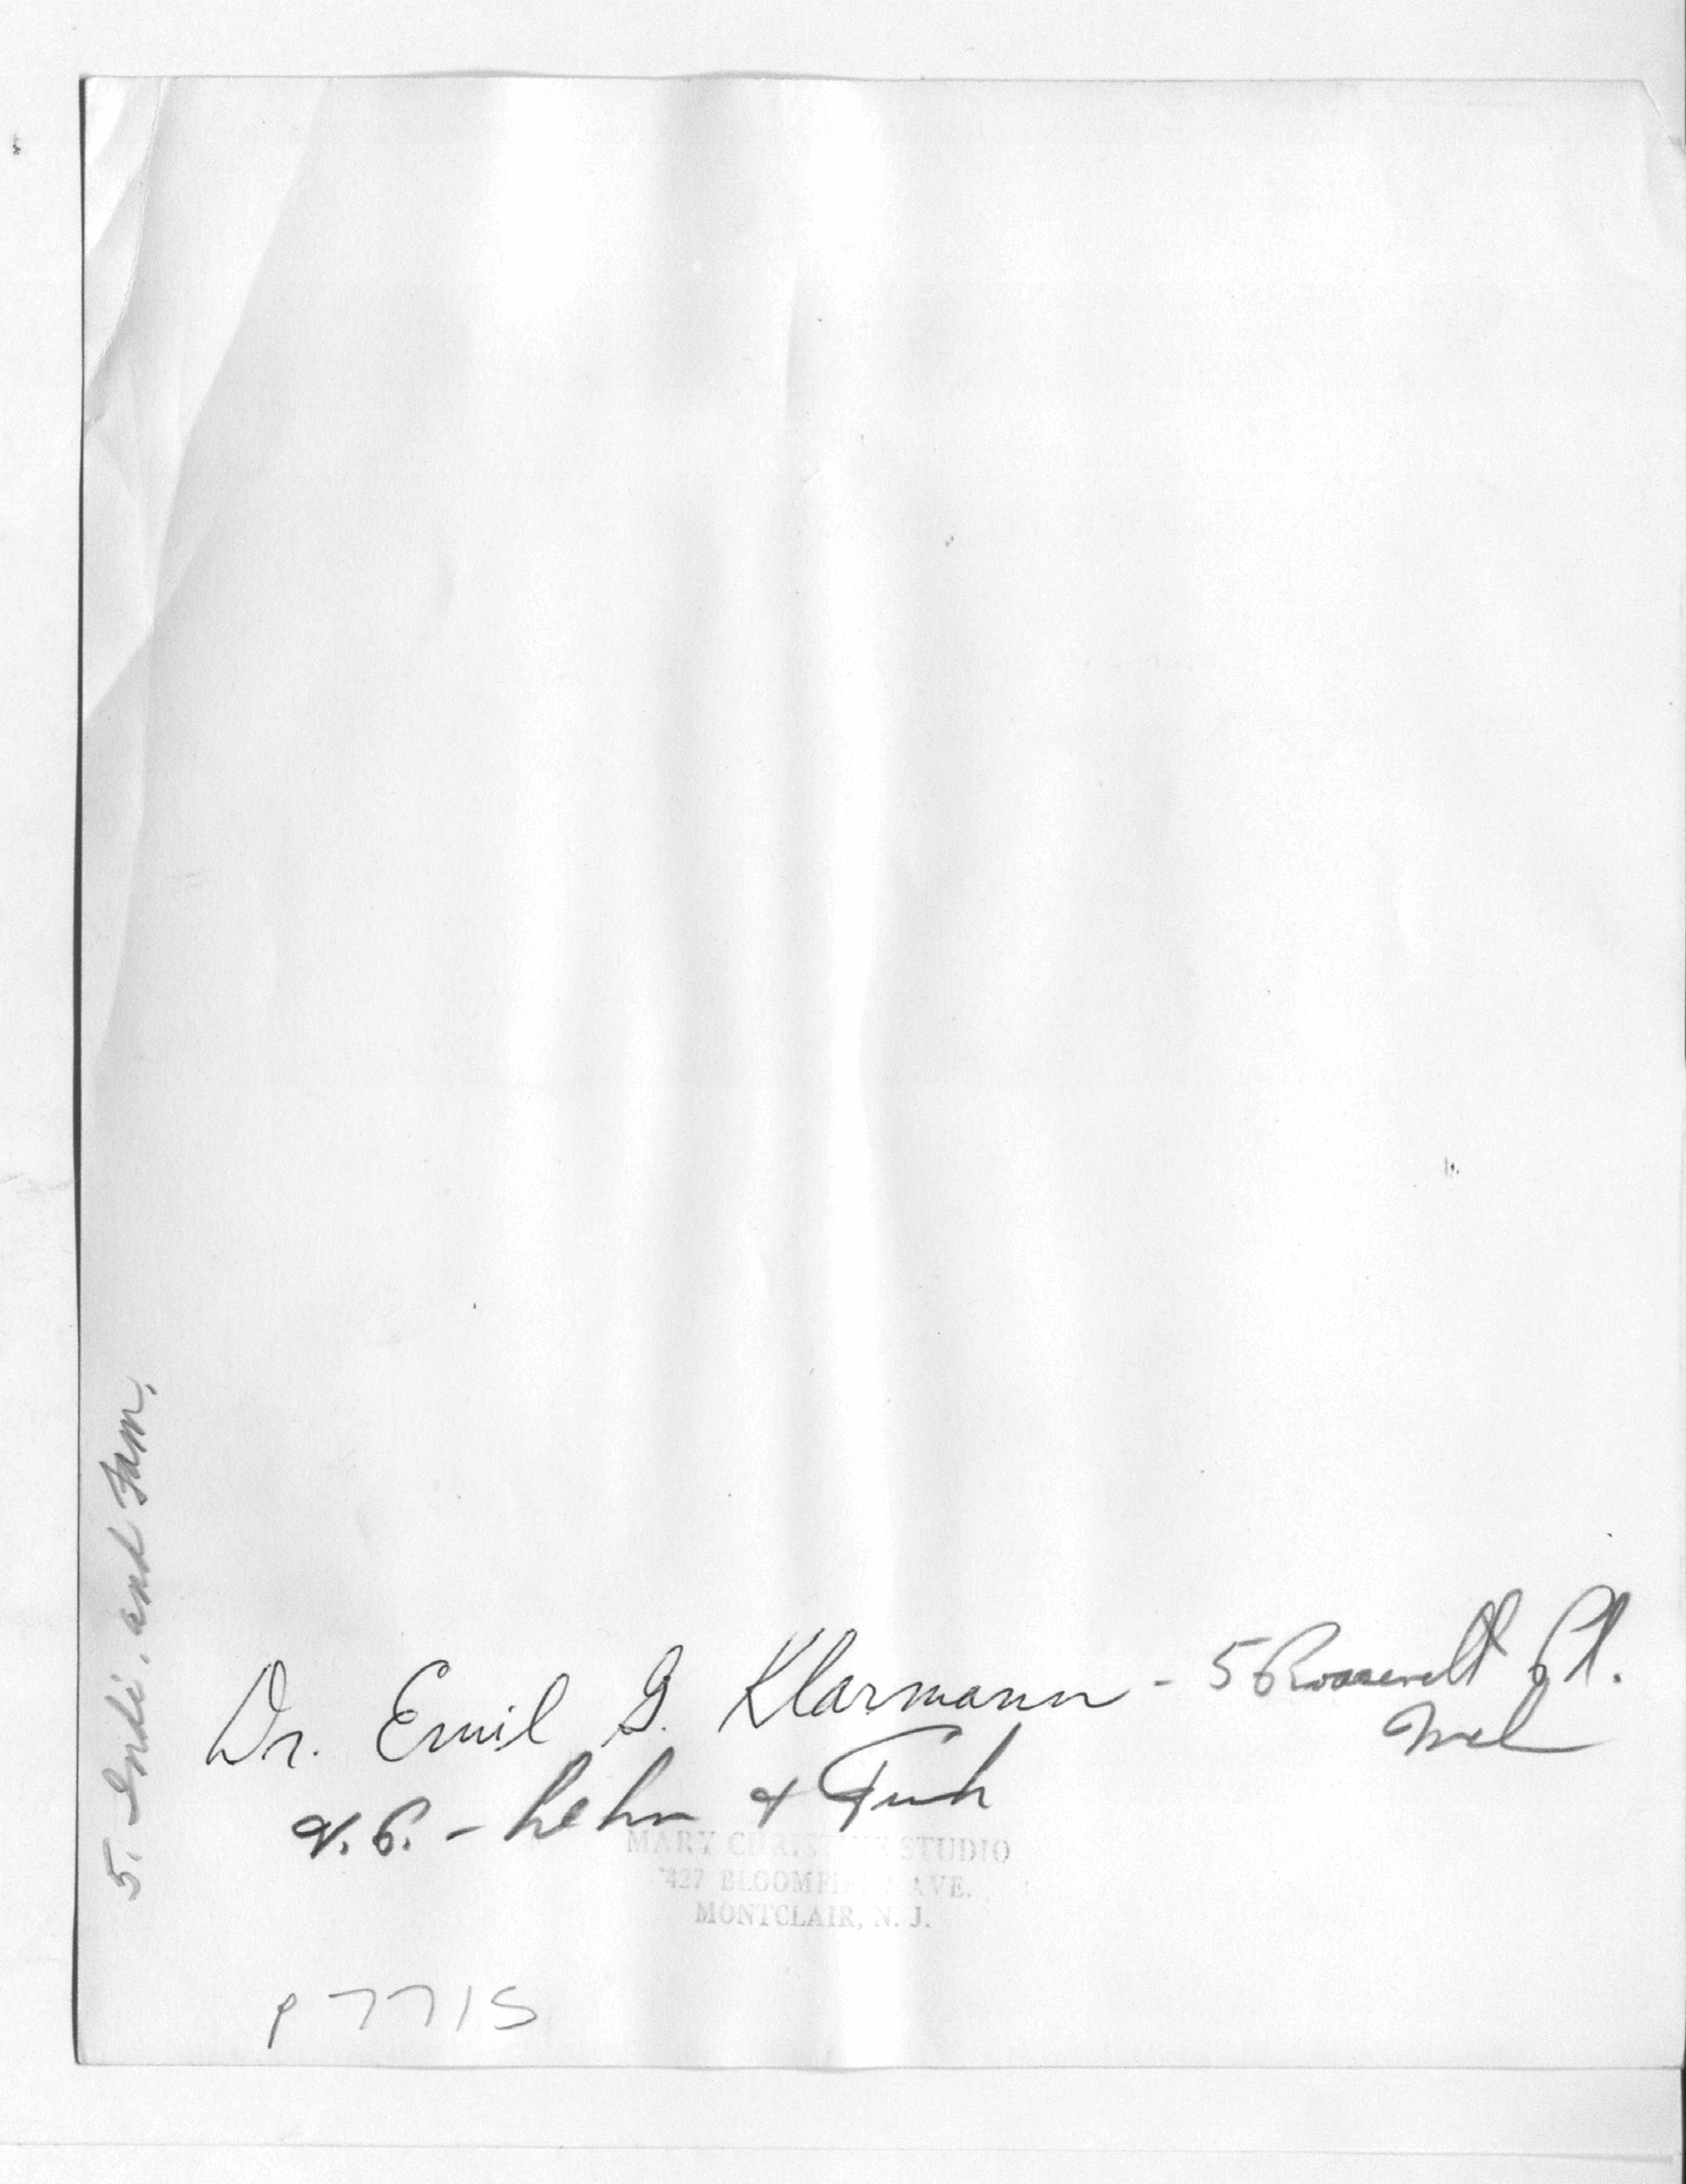 5. Indi. and Fam.
Dr. Emil G. Klarmann - 5 Roosevelt Pl.
V.P. - Lehn & Fink
MARY STUDIO
427 AVE.
MONTCLAIR, N. J.
P7715